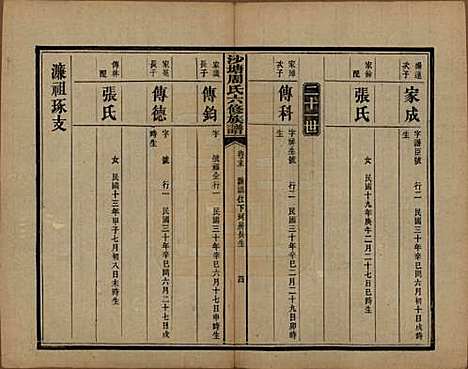 揚達次子
家成
字諧臣號 行一 民國三十年辛巳閏六月初十日戌時生
家錦配
張氏
民國十九年庚午二月二十七日辰時生
二十三世
家璋次子
傳科
字祥生號 行二 民國三十年辛巳六月二十九日卯時生
沙塘周氏六修族譜
卷末
四
家議長子
傳鈞
字 號福全行一 民國三十年辛巳六月十七日申時生
家英長子
傳德
字 號 行一 民國三十年辛巳閏六月二十七日戌時生
傳林配
張氏
女 民國十三年甲子七月初八日未時生
濂祖琢支